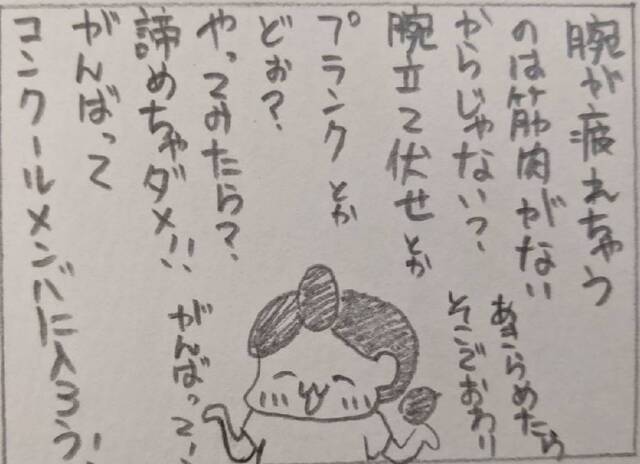 腕が疲れちゃう
のは筋肉がない
からじゃない?
腕立て伏せとか
プランクとか
どお?
やってみたら?
諦めちゃダメ!!
がんばって
コンクールメンバに入ろう!
あきらめたら
そこでおわり
がんばって!